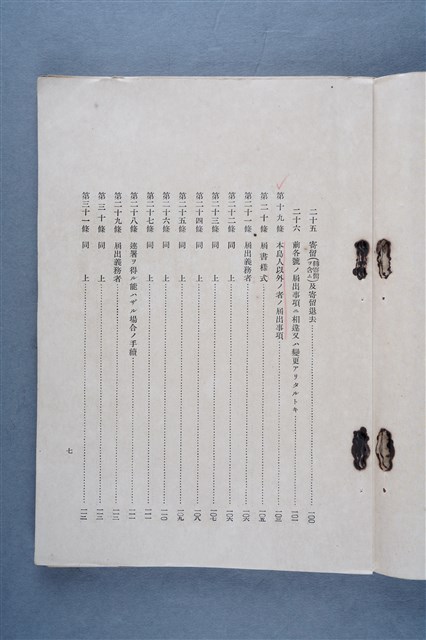 二十五 寄留及寄留退去 一〇〇
二十六 前各號ノ届出事項ニ相違又ハ變更アリタルトキ 一〇二
第十九條 本島人以外ノ者ノ届出事項 一〇三
第二十條 届書樣式 一〇五
第二十一條 届出義務者 一〇六
第二十二條 同上 一〇六
第二十三條 同上 一〇七
第二十四條 同上 一〇八
第二十五條 同上 一〇九
第二十六條 同上 一一〇
第二十七條 同上 一一一
第二十八條 連署ヲ得ル能ハザル場合ノ手續 一一一
第二十九條 届出義務者 一一二
第三十條 同上 一一二
第三十一條 同上 一一二
七